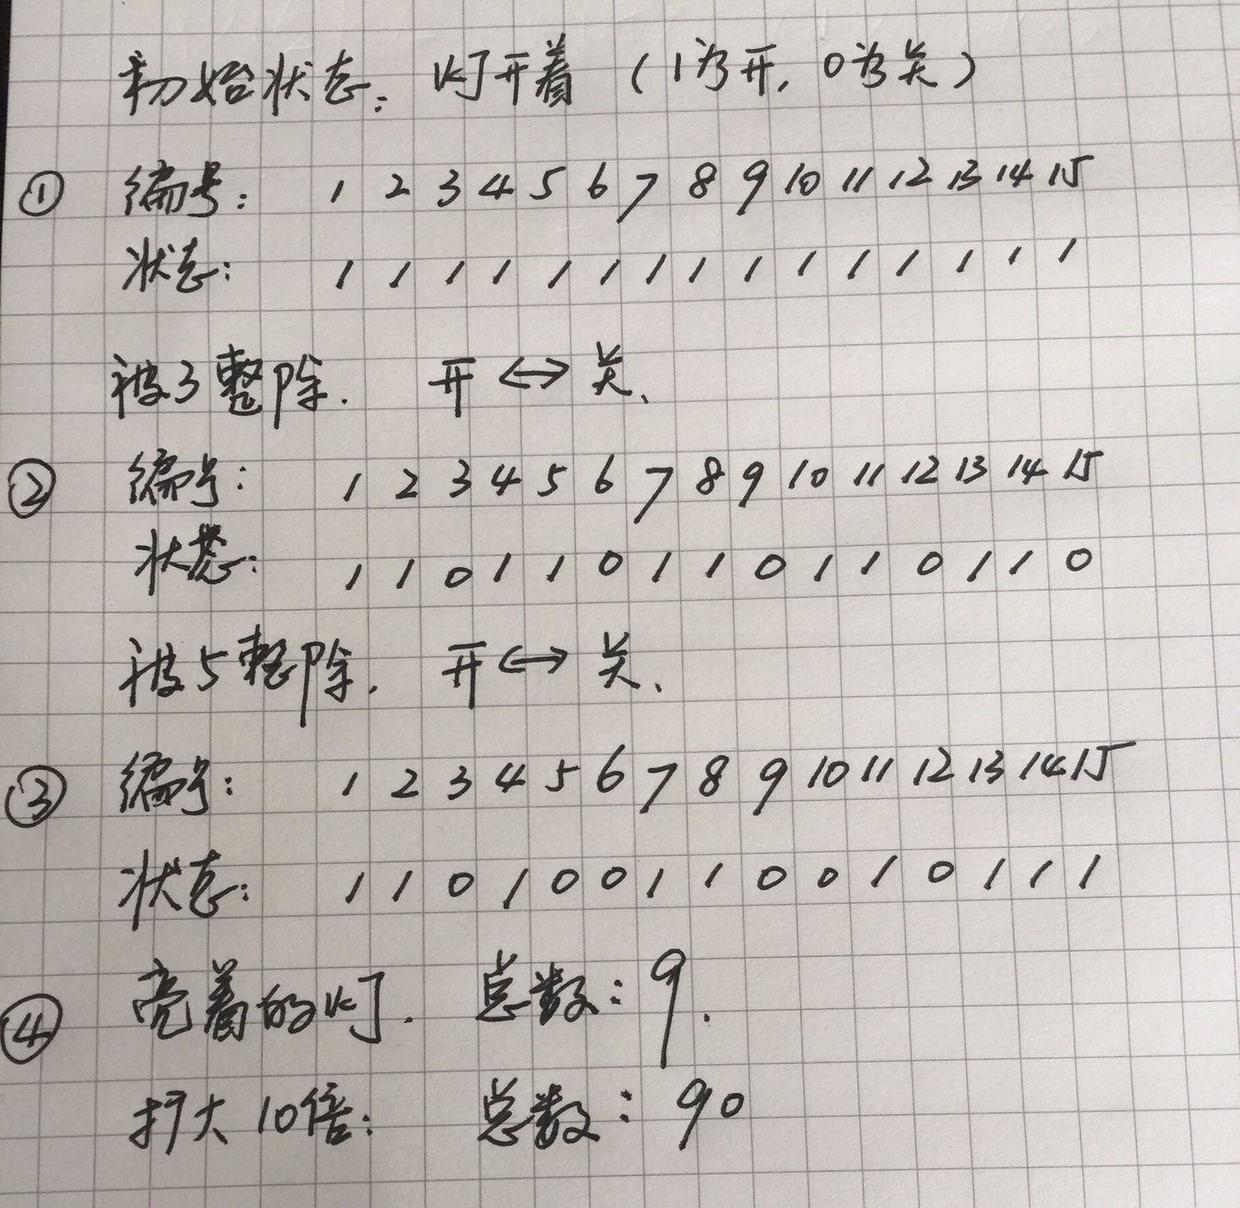 初始状态: 灯开着 (1为开, 0为关)
① 编号: 1 2 3 4 5 6 7 8 9 10 11 12 13 14 15
状态: 1 1 1 1 1 1 1 1 1 1 1 1 1 1 1
被3整除. 开 ↔ 关、
② 编号: 1 2 3 4 5 6 7 8 9 10 11 12 13 14 15
状态: 1 1 0 1 1 0 1 1 0 1 1 0 1 1 0
被5整除. 开 ↔ 关、
③ 编号: 1 2 3 4 5 6 7 8 9 10 11 12 13 14 15
状态: 1 1 0 1 0 0 1 1 0 0 1 0 1 1 1
④ 亮着的灯. 总数: 9.
扩大10倍: 总数: 90